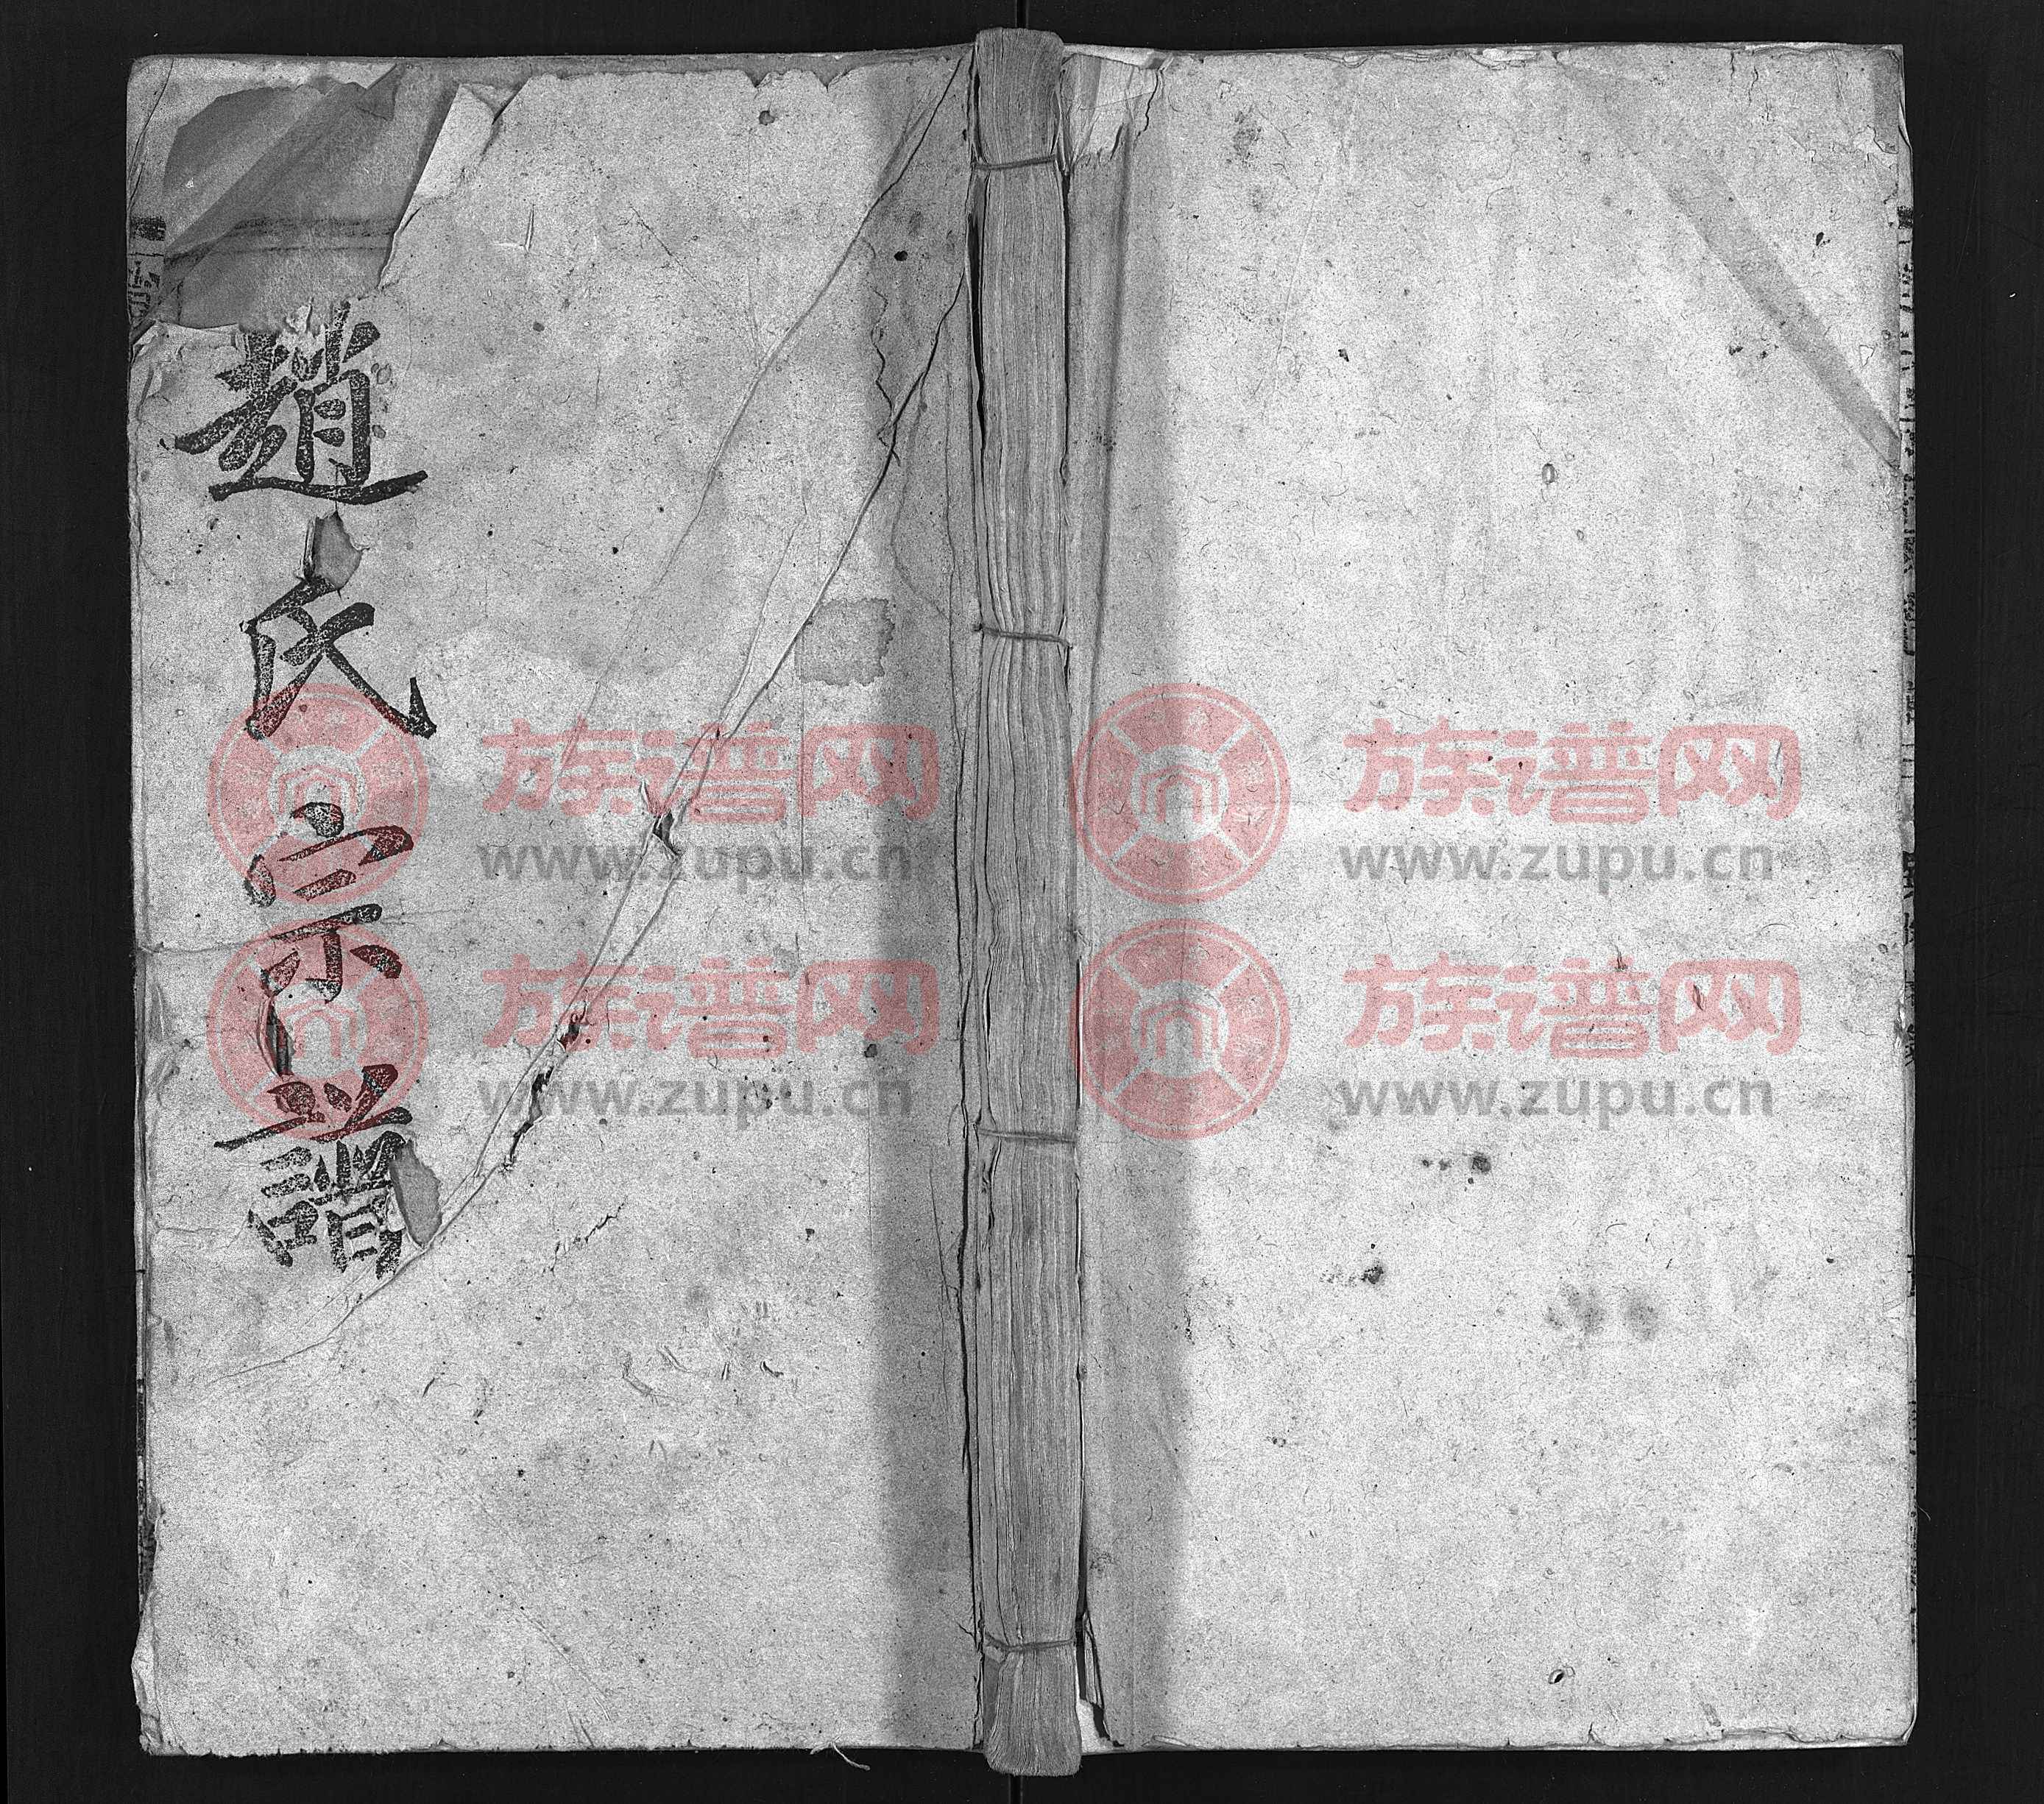 趙氏宗譜
族谱网 族谱网
www.zupu.cn www.zupu.cn
族谱网 族谱网
www.zupu.cn www.zupu.cn